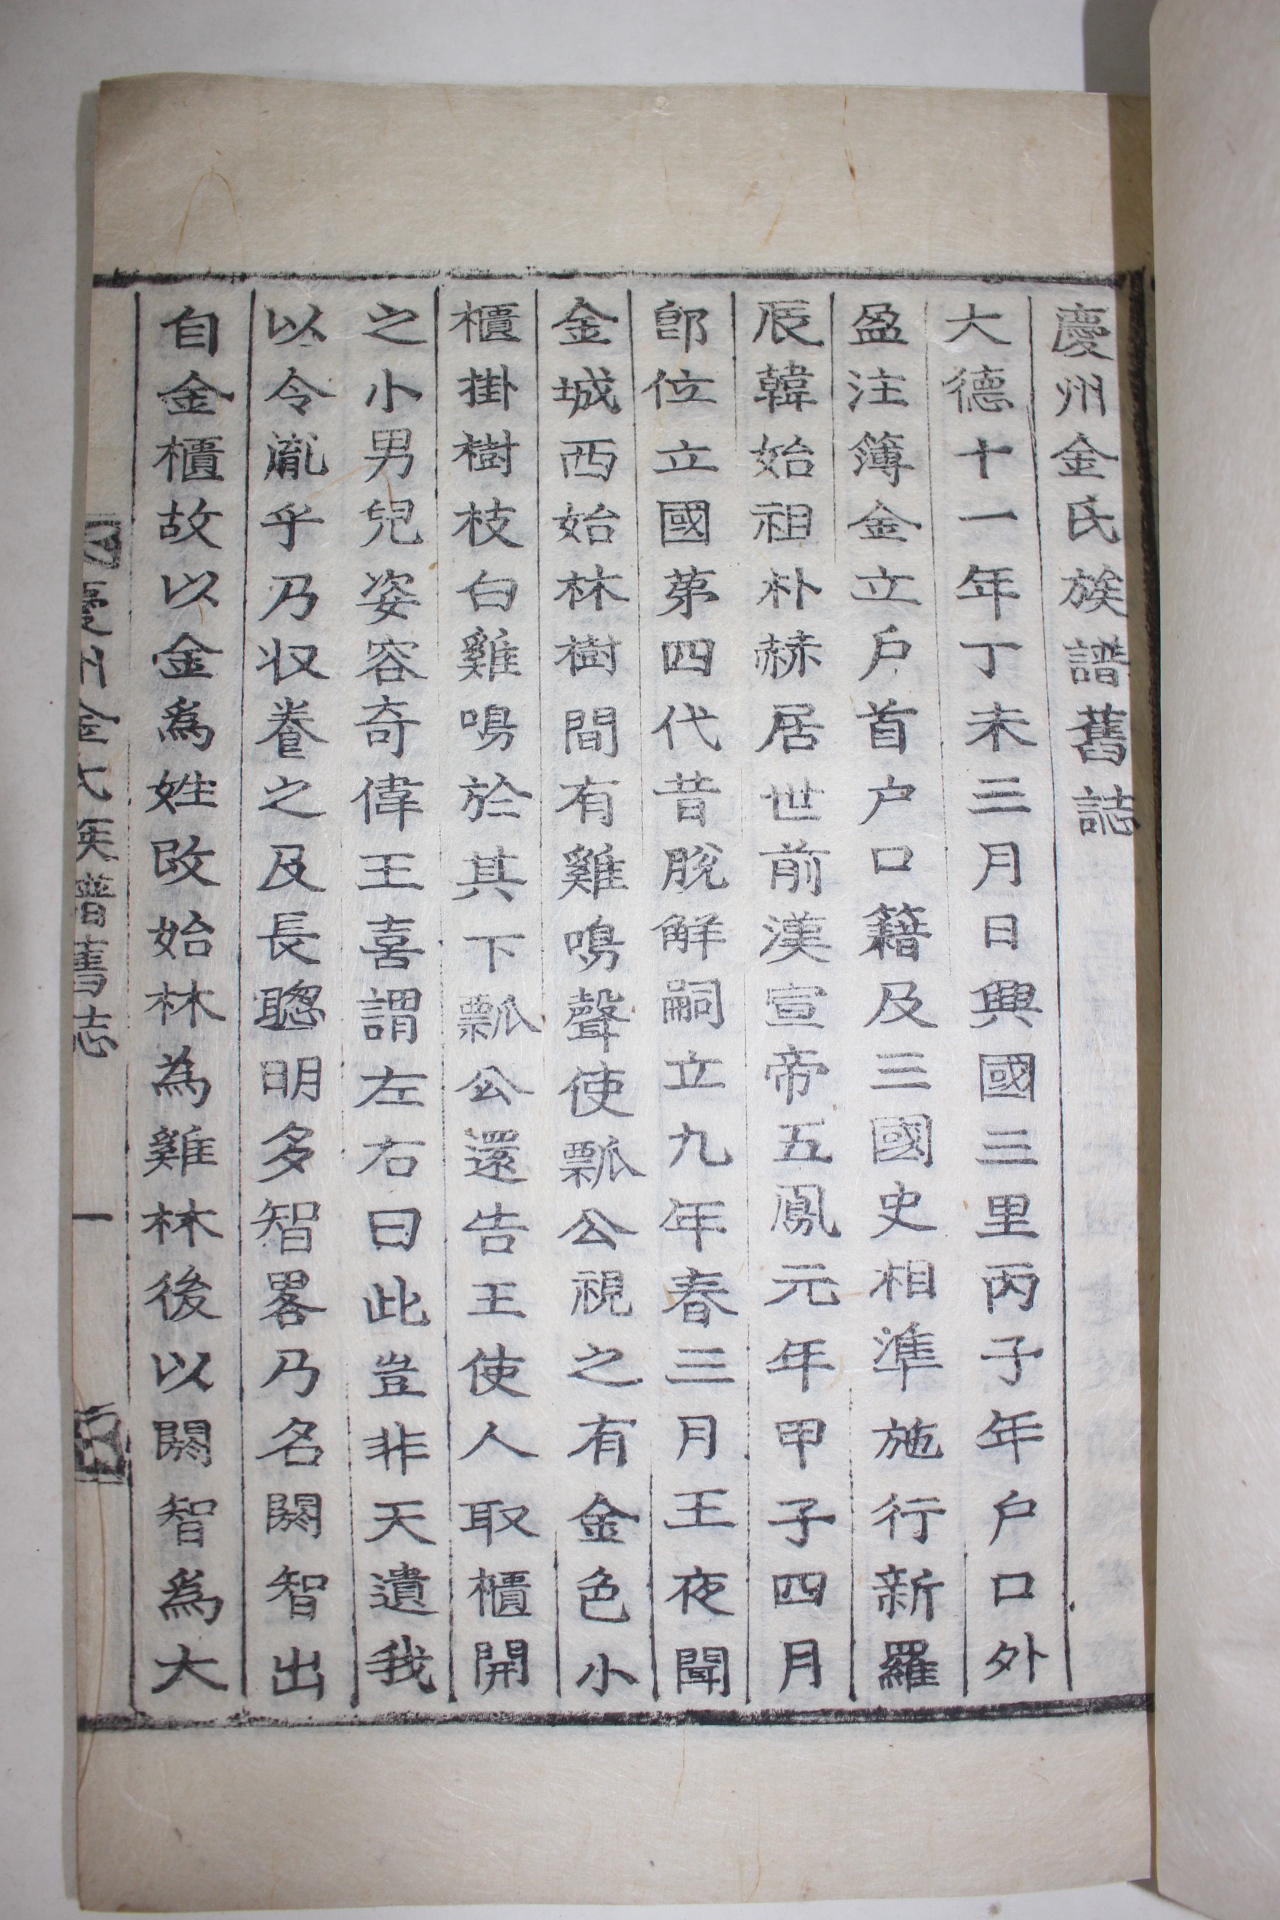 慶州金氏族譜舊誌
大德十一年丁未三月日興國三里丙子年戶口外
盈注簿金立戶首户口籍及三國史相準施行新羅
辰韓始祖朴赫居世前漢宣帝五鳳元年甲子四月
卽位立國苐四代昔脫解嗣立九年春三月王夜聞
金城西始林樹間有雞鳴聲使瓢公視之有金色小
櫃掛樹枝白雞鳴於其下瓢公還告王使人取櫃開
之小男兒姿容奇偉王喜謂左右曰此豈非天遺我
以令胤乎乃収養之及長聰明多智畧乃名閼智出
自金櫃故以金爲姓改始林為雞林後以閼智爲大
慶州金氏族譜舊誌
一